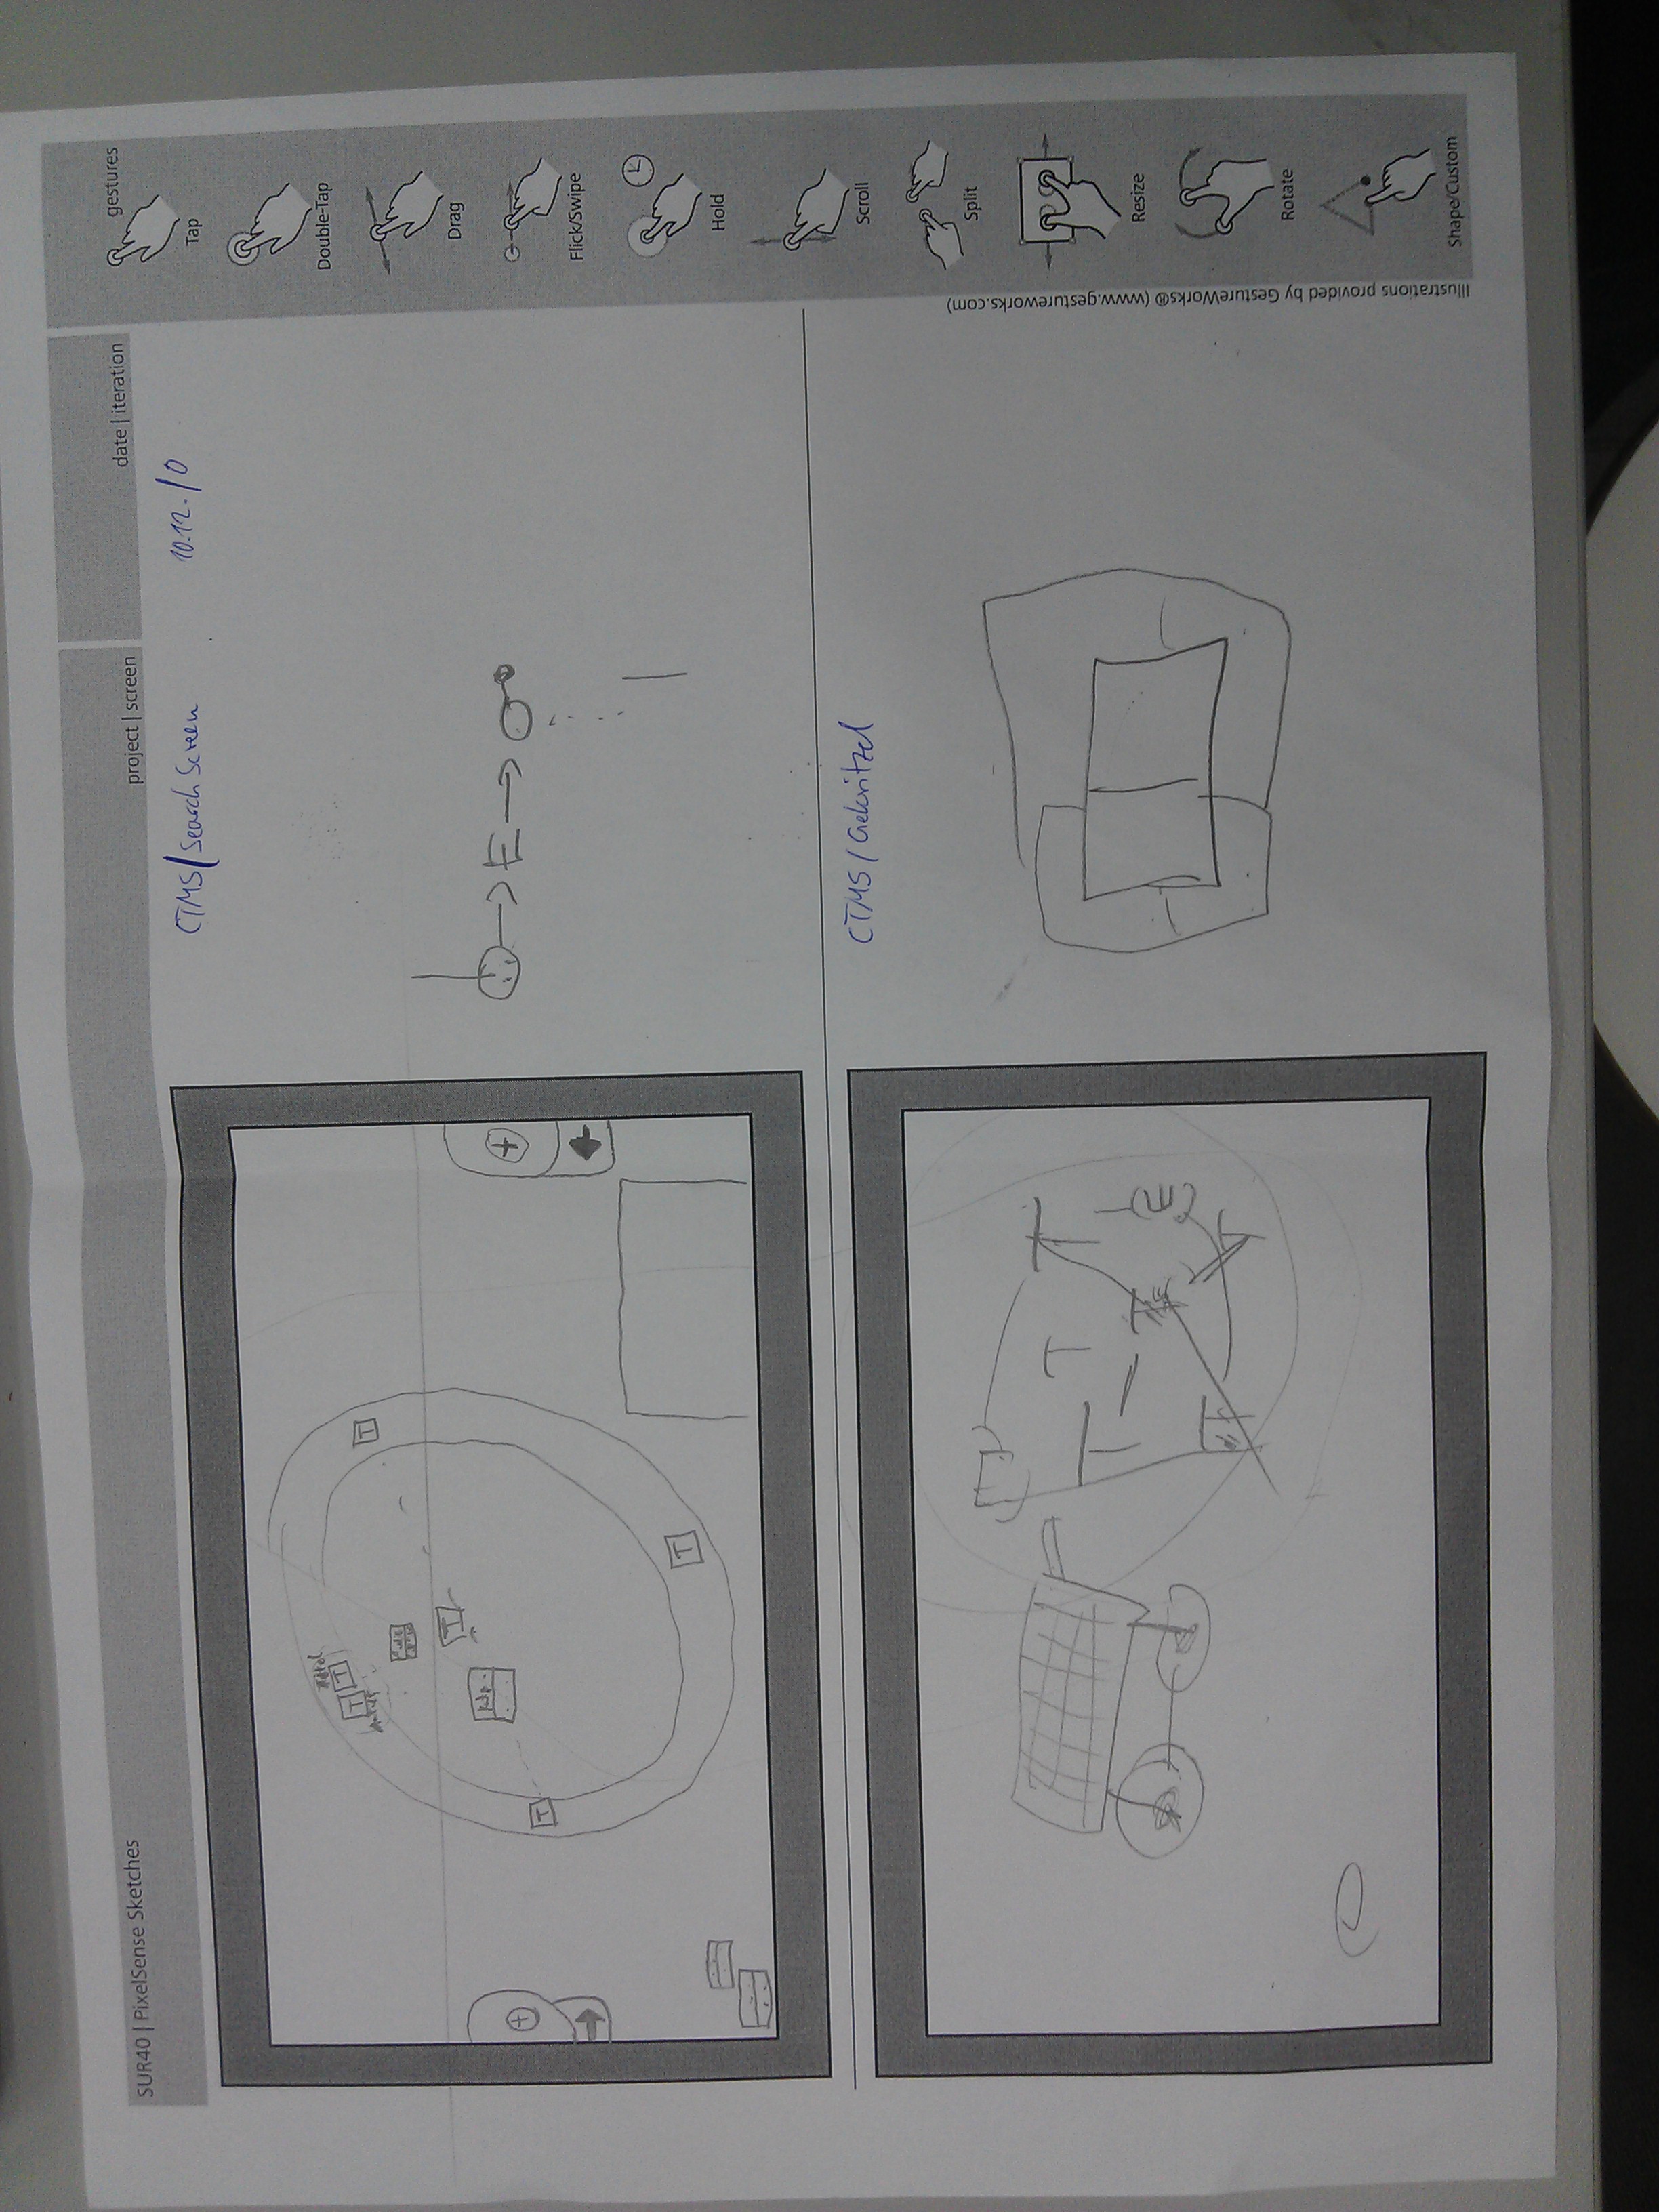 SUR40 | PixelSense Sketches
project | screen
date | iteration
gestures
CTMS/Search Screen
10.12./0
E
T
T
T
T
T
T
CTMS/Gekritzel
T
T
T
Tap
Double-Tap
Drag
Flick/Swipe
Hold
Scroll
Split
Resize
Rotate
Shape/Custom
Illustrations provided by GestureWorks® (www.gestureworks.com)